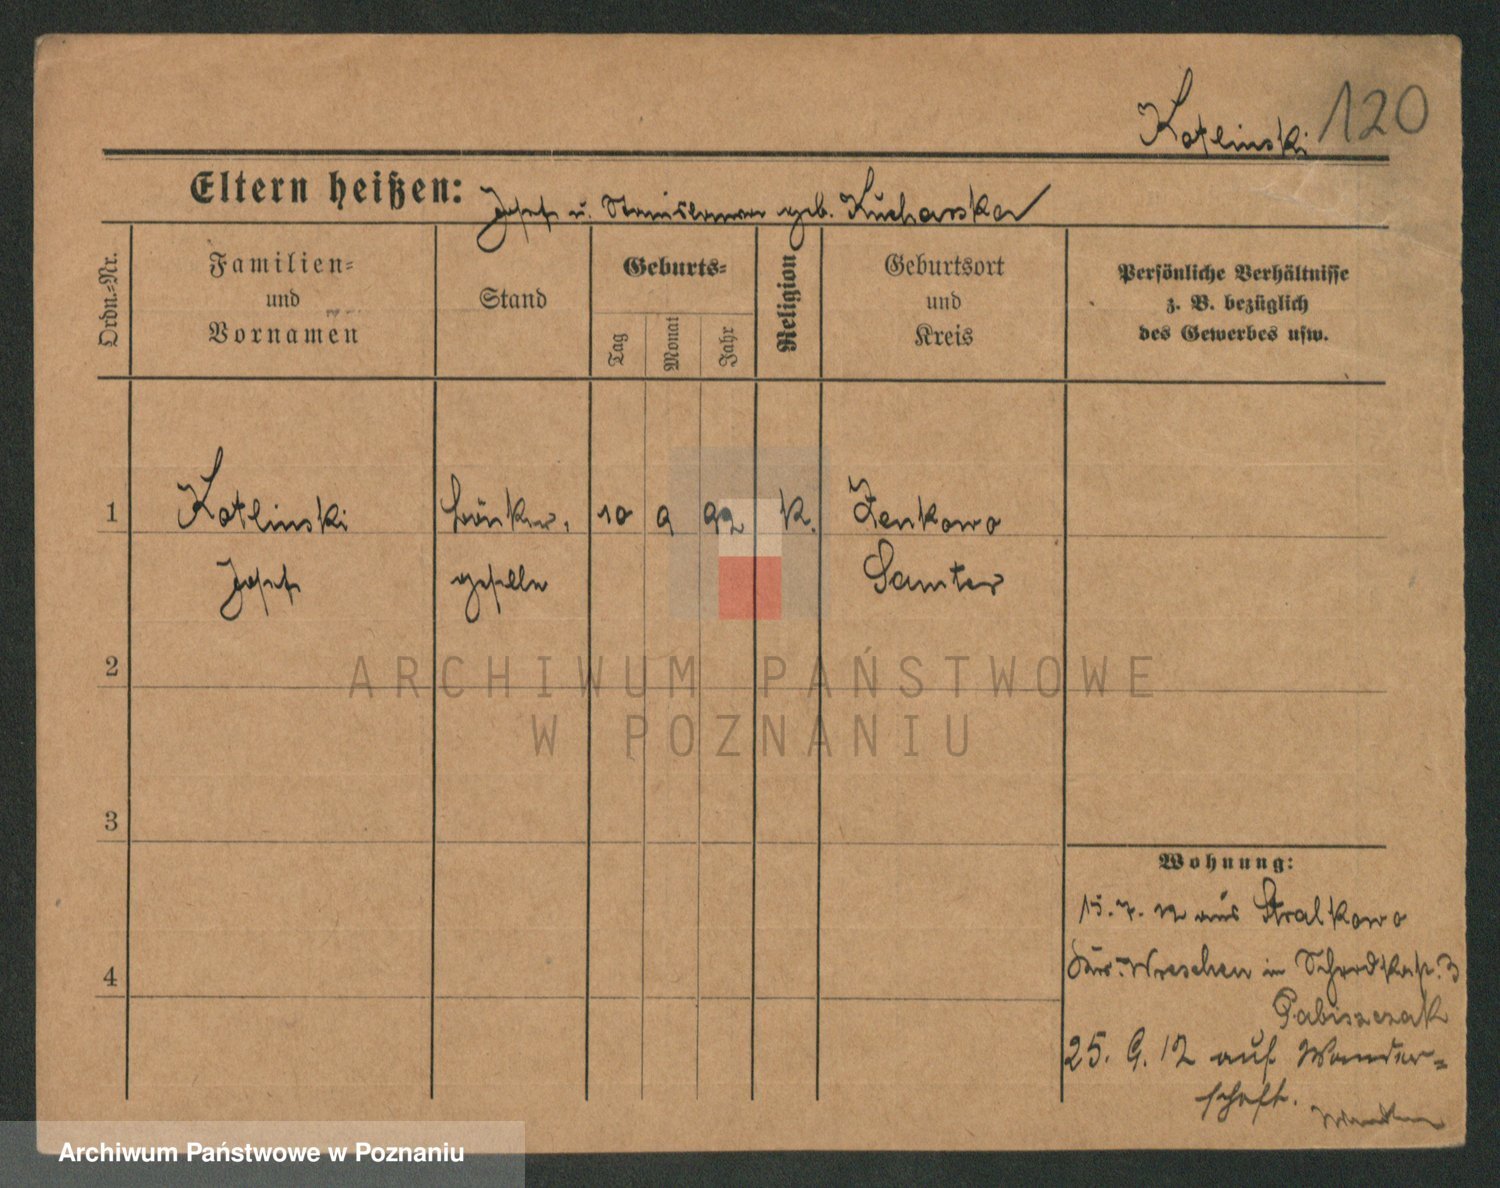 Kotlinski 120
Eltern heißen: Josef u. Stanislawa geb. Kucharska
Ordn.-Nr.
Familien-
und
Vornamen
Stand
Geburts-
Tag
Monat
Jahr
Religion
Geburtsort
und
Kreis
Persönliche Verhältnisse
z. B. bezüglich
des Gewerbes usw.
1 Kotlinski 10 9 92 K. Zenkowo
Josef geselle Samter
2
3
4
Wohnung:
15. 7. 12 aus Stralkowo
Wreschen in 3
Pabiszczak
25. 9. 12 auf Wander-
schaft.
ARCHIWUM PAŃSTWOWE
W POZNANIU
Archiwum Państwowe w Poznaniu